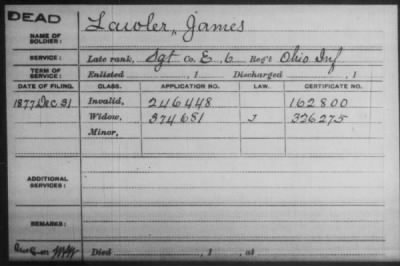 DEAD
NAME OF SOLDIER: Lawler, James
SERVICE: Late rank, Sgt Co. E, 6 Reg't Ohio Inf
TERM OF SERVICE: Enlisted , 1 Discharged , 1
DATE OF FILING. CLASS. APPLICATION NO. LAW. CERTIFICATE NO.
1877 Dec 31 Invalid, 246448 162800
Widow, 374681 J 326275
Minor,
ADDITIONAL SERVICES:
REMARKS:
Died , 1 , at